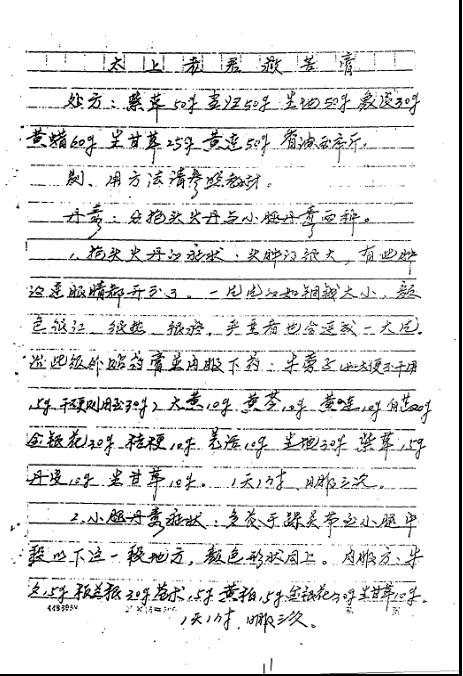 太上老君救苦膏
处方：紫草50g 当归50g 生地50g 象皮30g
黄蜡60g 生甘草25g 黄连50g 香油
制、用方法请参照教材。
丹毒：分抱头火丹与小腿丹毒两种。
1、抱头火丹的症状：头肿的很大，有些肿
的连眼睛都开不了。一片片的如铜钱大小，颜
色很红、很热、很疼，严重者也会连成一大片。
治此除外贴药膏并内服下药：牛蒡子（如大便不干用
15g 干硬则用30g）大黄10g 黄芩10g 黄连10g 白芷20g
金银花30g 桔梗10g 羌活10g 生地30g 紫草15g
丹皮10g 生甘草10g。1天1付，日服三次。
2、小腿丹毒症状：多发于踝关节之小腿中
段以下这一段地方，颜色形状同上。内服方：牛
15g 板兰根30g 苍术15g 黄柏15g 金银花30g 生甘草10g。
1天1付，日服三次。
11